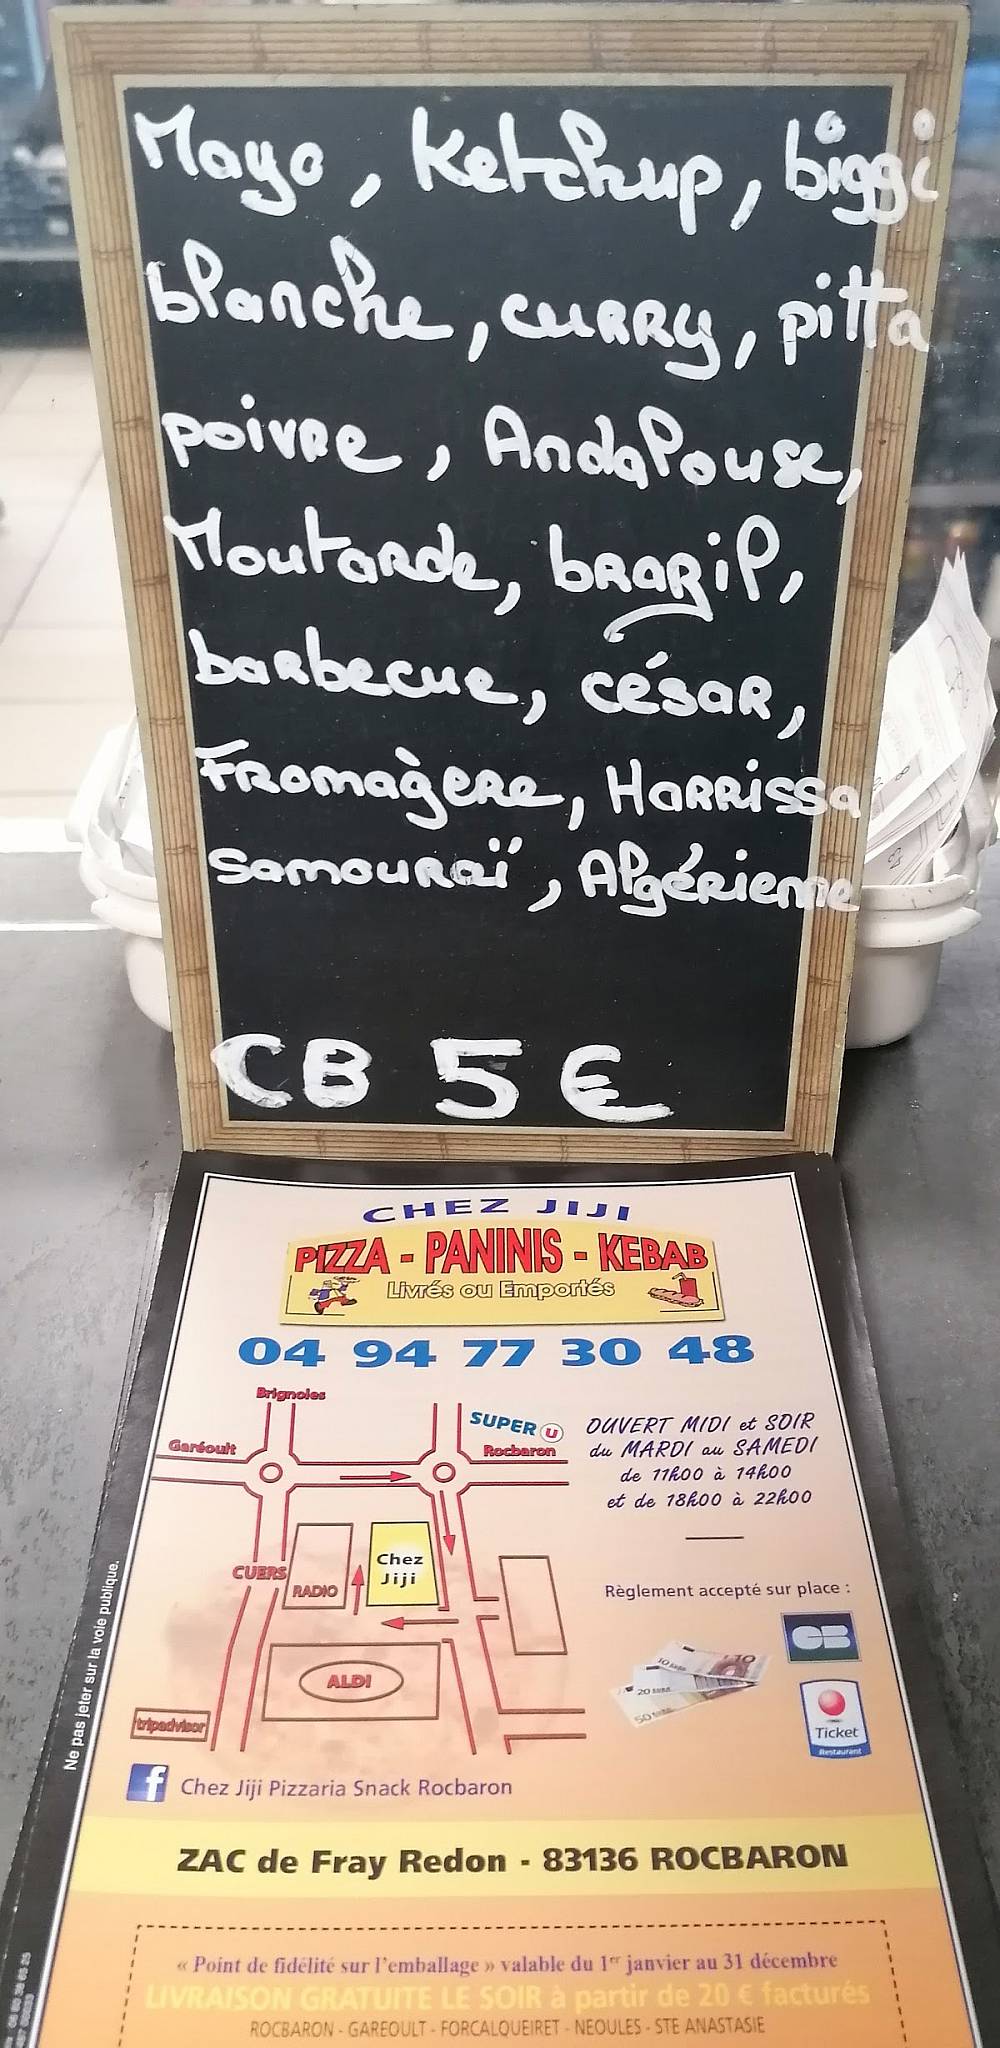 Mayo, Ketchup, biggi
blanche, curry, pitta
poivre, Andalouse,
Moutarde, brazil,
barbecue, césar,
Fromagère, Harrissa
samouraï, Algérienne
CB 5€
CHEZ JIJI
PIZZA - PANINIS - KEBAB
Livrés ou Emportés
04 94 77 30 48
Brignoles
Garéoult
SUPER U
Rocbaron
OUVERT MIDI et SOIR
du MARDI au SAMEDI
de 11h00 à 14h00
et de 18h00 à 22h00
CUERS
RADIO
Chez
Jiji
ALDI
tripadvisor
Règlement accepté sur place :
CB
10 EURO
20 EURO
50 EURO
Ticket
Restaurant
Chez Jiji Pizzaria Snack Rocbaron
Ne pas jeter sur la voie publique.
ZAC de Fray Redon - 83136 ROCBARON
« Point de fidélité sur l'emballage » valable du 1er janvier au 31 décembre
LIVRAISON GRATUITE LE SOIR à partir de 20 € facturés
ROCBARON - GAREOULT - FORCALQUEIRET - NEOULES - STE ANASTASIE